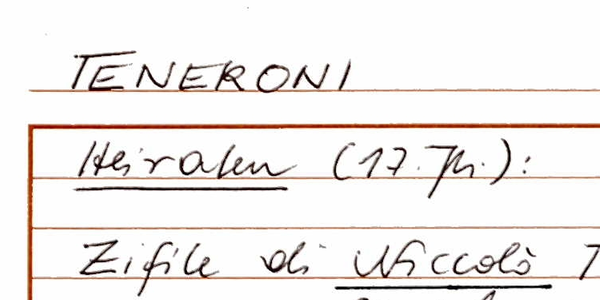 TENERONI
Heiraten (17. Jh.):
Zifile di Niccolò T